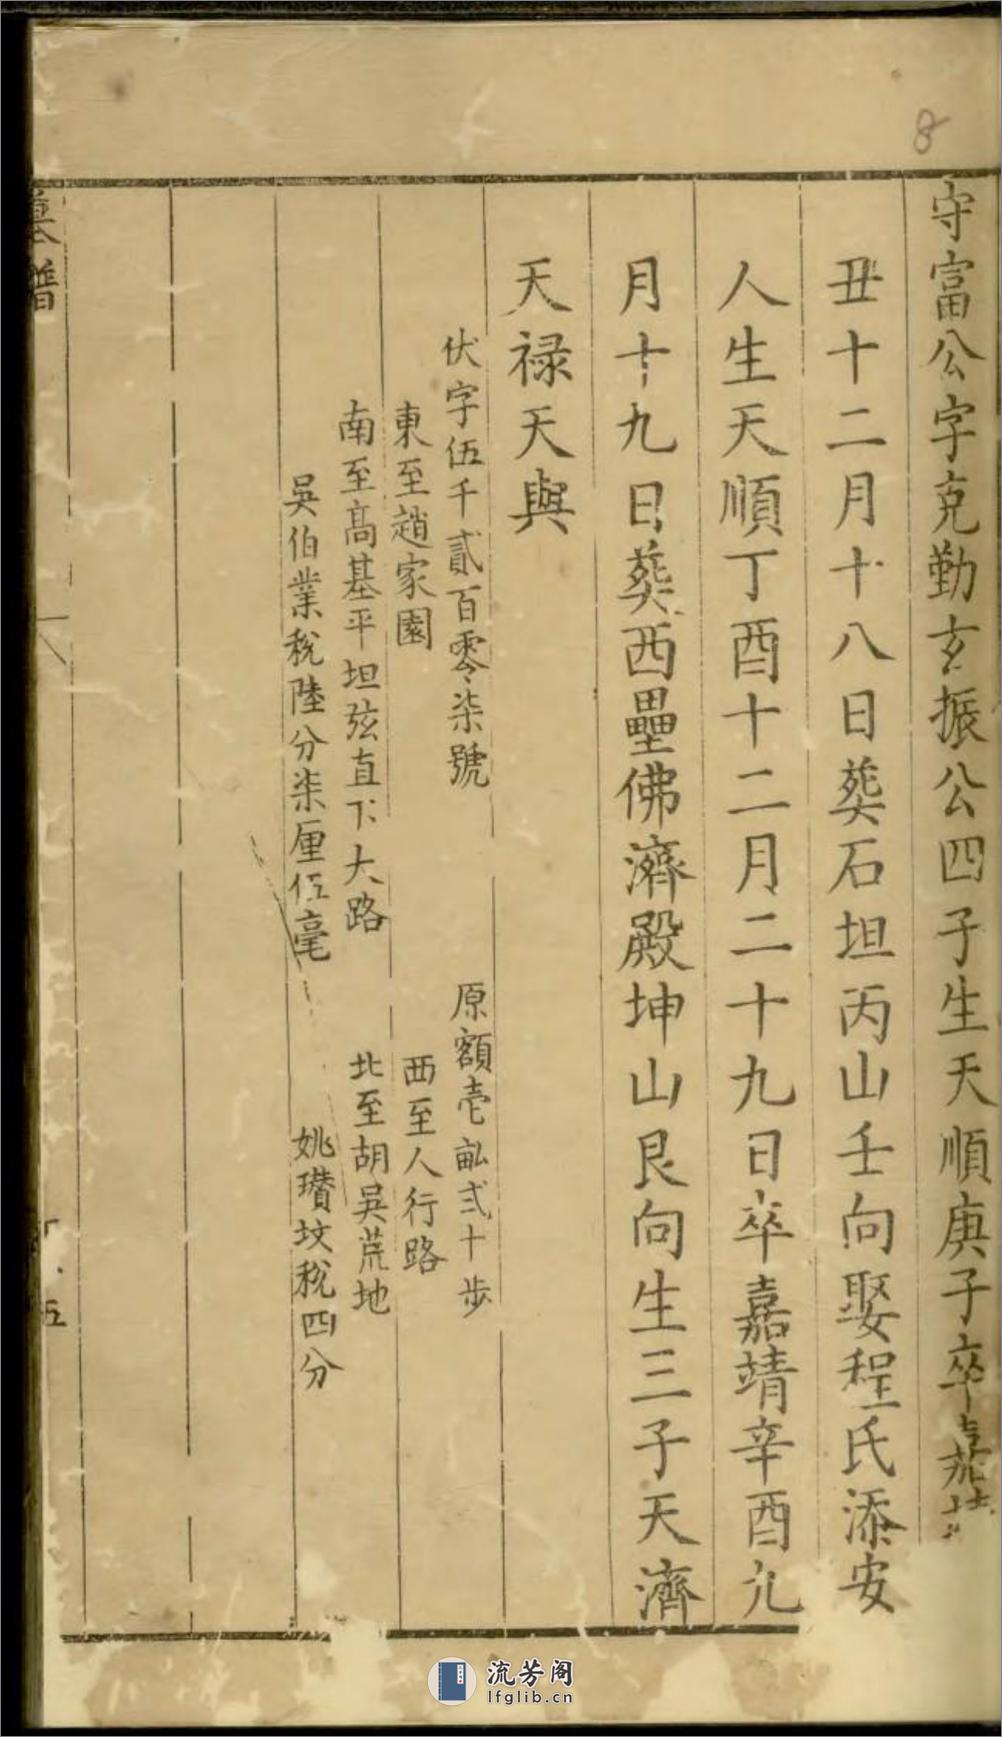 8
守富公字克勤玄振公四子生天順庚子卒嘉靖
丑十二月十八日葬石坦丙山壬向娶程氏添安
人生天順丁酉十二月二十九日卒嘉靖辛酉九
月十九日葬西壘佛濟殿坤山艮向生三子天濟
天禄天與
伏字伍千貳百零柒號 原額壱畝弍十步
東至趙家園 西至人行路
南至高基平坦弦直下大路 北至胡吳荒地
吳伯業稅陸分柒厘伍毫 姚瓚坟稅四分
墓譜
五
流芳阁
lfglib.cn